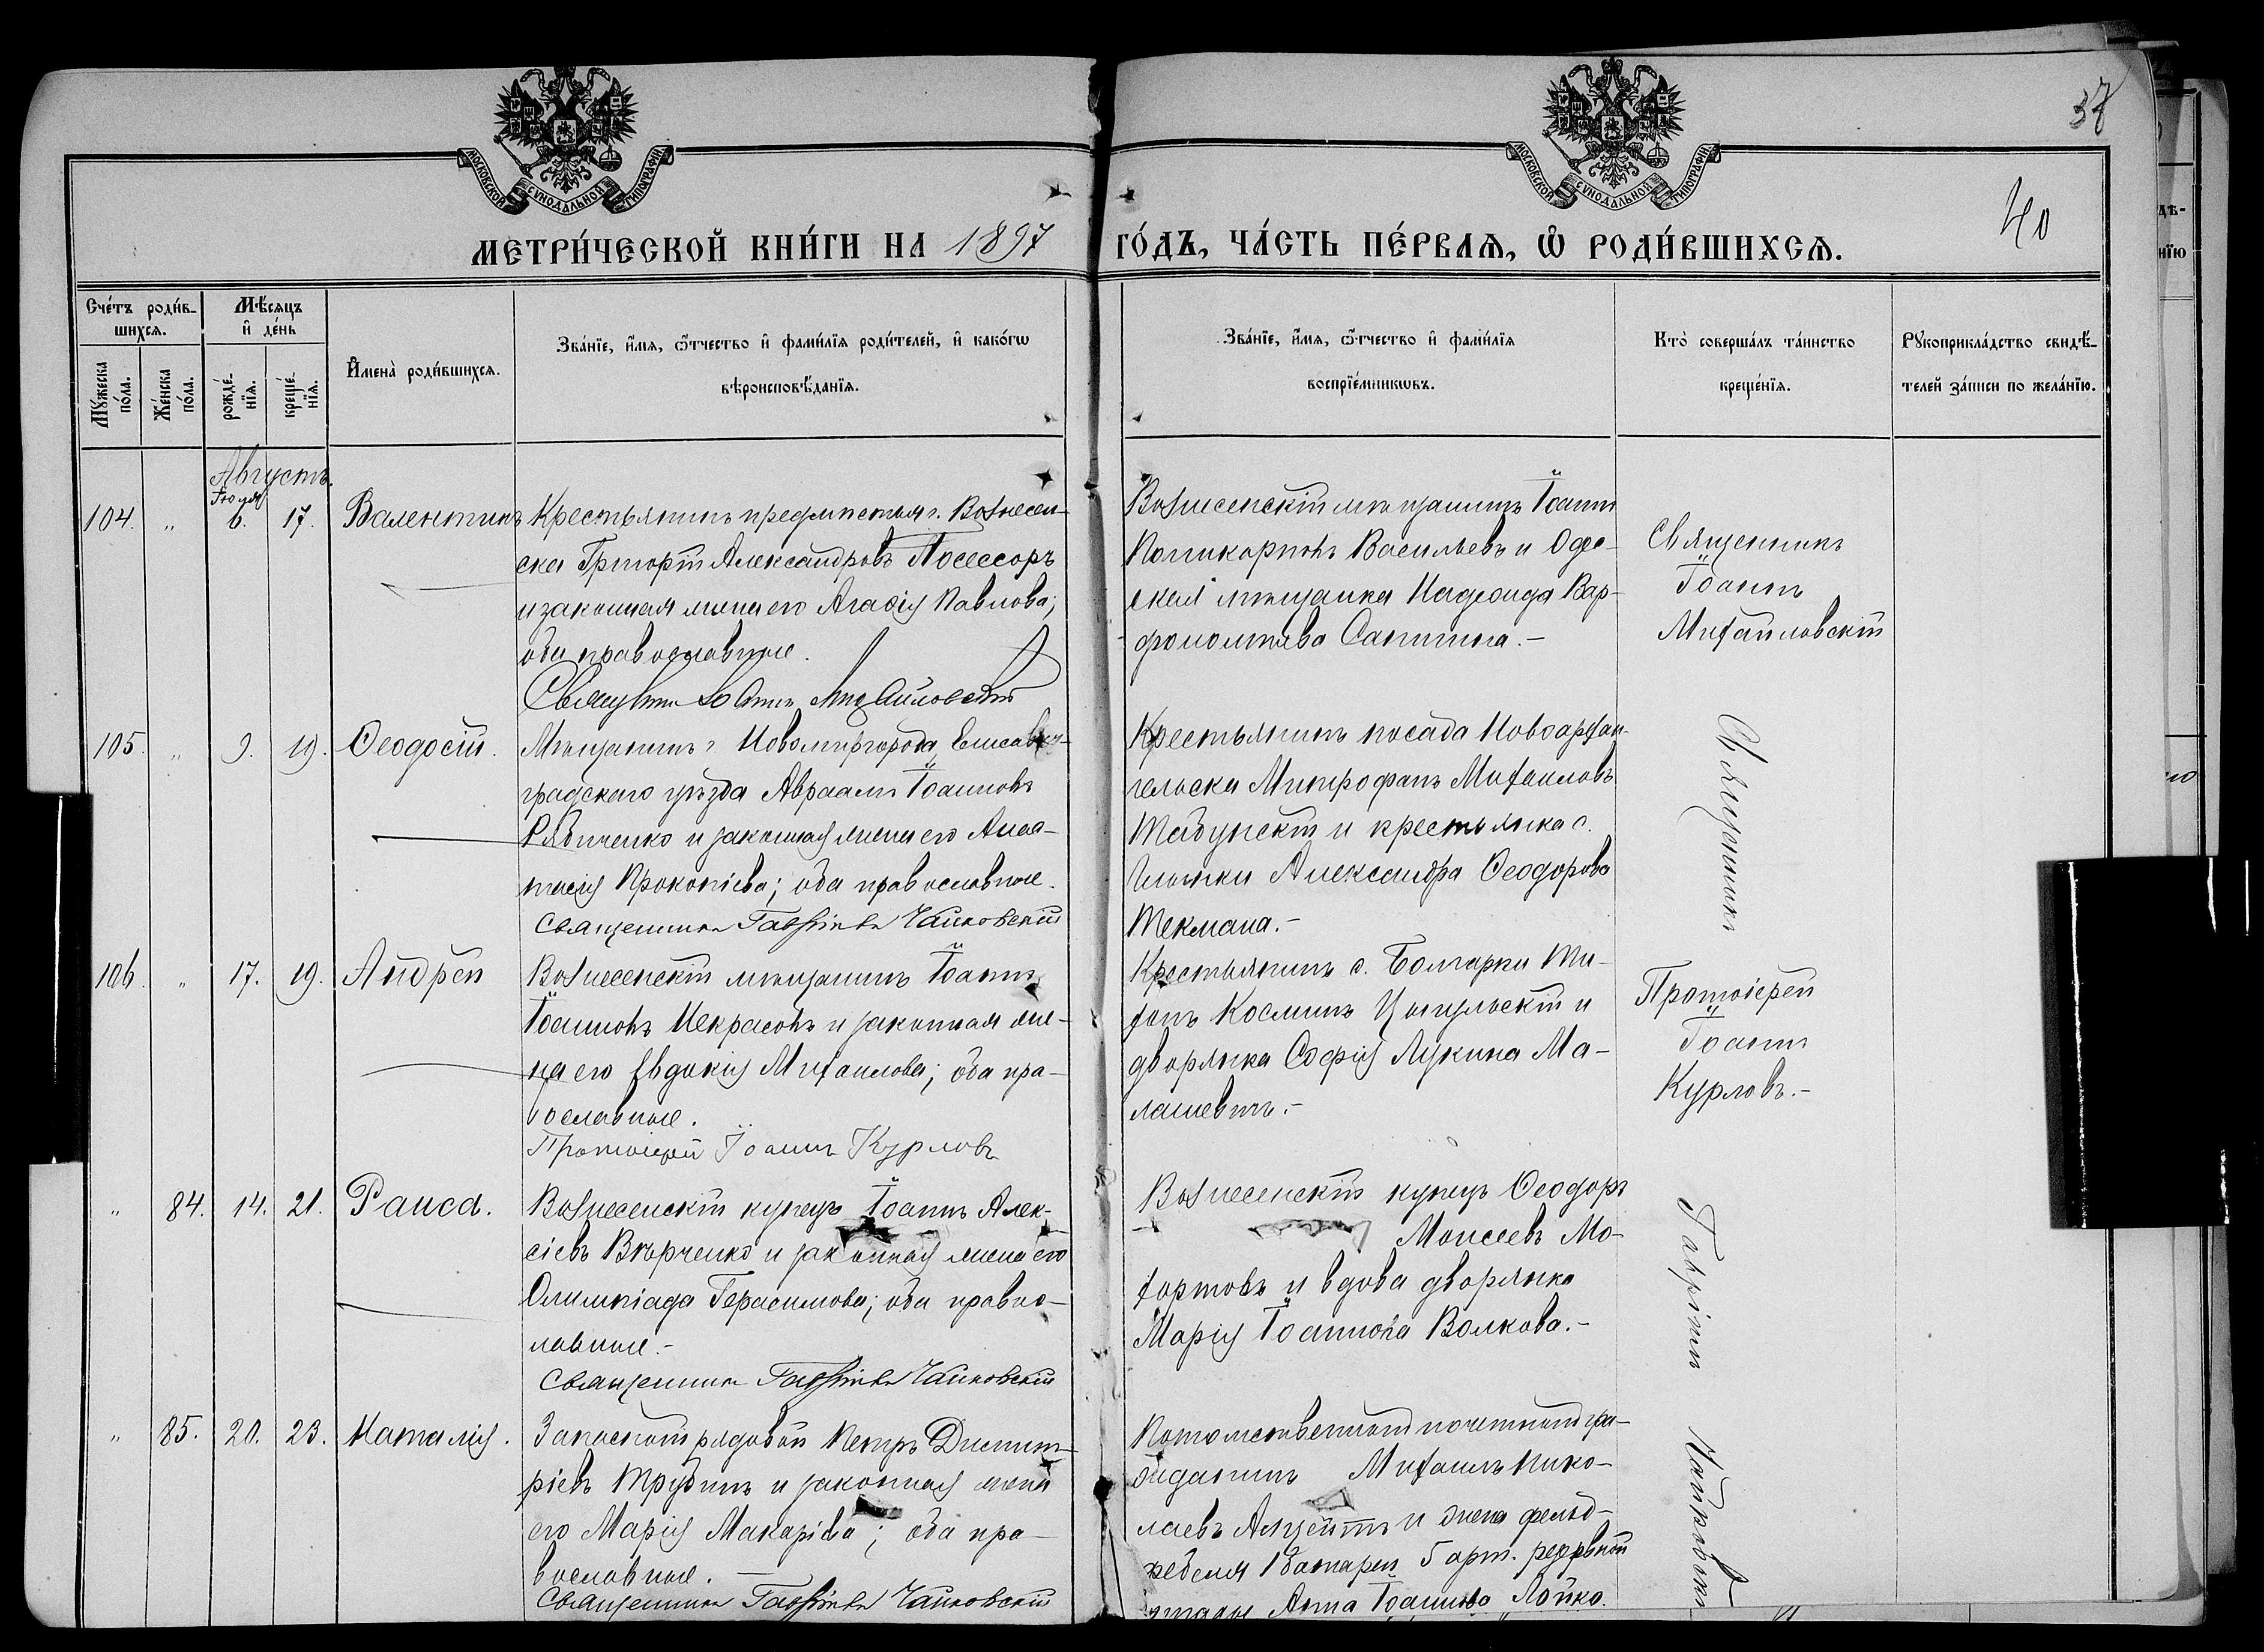 МОСКОВСКОЙ СѴНОДАЛЬНОЙ ТИПОГРАФІИ
МОСКОВСКОЙ СѴНОДАЛЬНОЙ ТИПОГРАФІИ
37
40
МЕТРИ́ЧЕСКОЙ КНИ́ГИ НА 1897 ГО́ДЪ, ЧА́СТЬ ПЕ́РВАѦ, Ѡ РОДИ́ВШИХСѦ.
Сче́тъ роди́в-
шихсѧ.
Мѣ́сѧцъ
и҆ де́нь
Мꙋ́жеска по́ла.
Же́нска по́ла.
рожде́-
нїѧ.
креще́-
нїѧ.
И҆мена̀ роди́вшихсѧ.
Зва́нїе, и҆́мѧ, ѻ҆́тчество и҆ фами́лїѧ роди́телей, и҆ како́гѡ
вѣроисповѣ́данїѧ.
Зва́нїе, и҆́мѧ, ѻ҆́тчество и҆ фами́лїѧ
воспрїе́мникѡвъ.
Кто̀ соверша́лъ та́инство
креще́нїѧ.
Рꙋкоприкла́дство свидѣ́-
телей за́писи по жела́нїю.
Августъ.
Іюля
104. " 6. 17. Валентинъ
Крестьянинъ предмѣстья г. Вознесен-
ска Григорій Александровъ Посессоръ
и законная жена его Агафія Павлова;
оба православные.
Священникъ Іоаннъ Михайловскій
Вознесенскій мѣщанинъ Іоаннъ
Поликарповъ Васильевъ и Одес-
ская мѣщанка Надежда Вар-
фоломѣева Санина.-
Священникъ
Іоаннъ
Михайловскій
105. " 9. 19. Ѳеодосій.
Мѣщанинъ г. Новомиргорода, Елисавет-
градскаго уѣзда Авраамъ Іоанновъ
Рябиченко и законная жена его Анас-
тасія Прокопіева; оба православные.
Священникъ Гавріилъ Чайковскій
Крестьянинъ посада Новоархан-
гельска Митрофанъ Михаиловъ
Табунскій и крестьянка с.
Александра Ѳеодорова
Текмана.-
Священникъ
106. " 17. 19. Андрей
Вознесенскій мѣщанинъ Іоаннъ
Іоанновъ Некрасовъ и законная же-
на его Евдокія Михаилова; оба пра-
вославные.
Протоіерей Іоаннъ Курловъ
Крестьянинъ с. Болгарки Ти-
хонъ Косминъ Цыгульскій и
дворянка Софія Лукина Ма-
лашевичъ.-
Протоіерей
Іоаннъ
Курловъ.-
" 84. 14. 21. Раиса.
Вознесенскій купецъ Іоаннъ Алек-
сіевъ Вѣрченко и законная жена его
Олимпіада Герасимова; оба правос-
лавные.-
Священникъ Гавріилъ Чайковскій
Вознесенскій купецъ Ѳеодоръ
Моисеевъ Мо-
хортовъ и вдова дворянка
Марія Іоаннова Волкова.-
Гавріилъ
" 85. 20. 23. Наталія.
Запасной рядовой Петръ Димит-
ріевъ Трубинъ и законная жена
его Марія Макаріева; оба пра-
вославные.
Священникъ Гавріилъ Чайковскій
Потомственный почетный гра-
жданинъ Михаилъ Нико-
лаевъ и жена фельд-
фебеля 1 батареи 5 арт. резервной
Анна Іоаннова Лойко.
Чайковскій